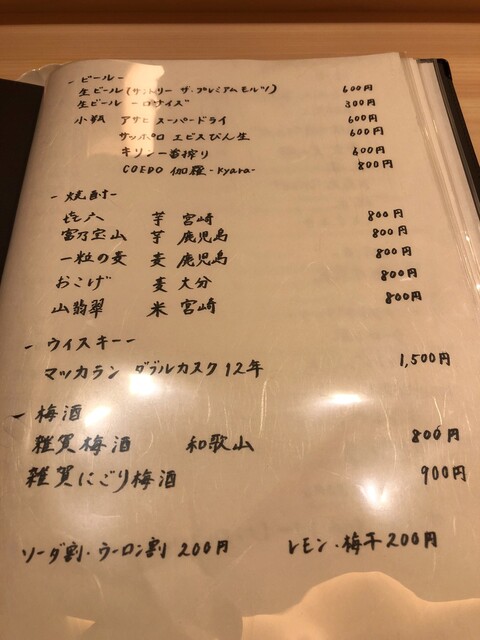 - ビール -
生ビール(サントリー ザ・プレミアムモルツ) 600円
生ビール 一口サイズ 300円
小瓶 アサヒ スーパードライ 600円
サッポロ エビスびん生 600円
キリン一番搾り 600円
COEDO 伽羅 -kyara- 800円
- 焼酎 -
㐂六 芋 宮崎 800円
富乃宝山 芋 鹿児島 800円
一粒の麦 麦 鹿児島 800円
おこげ 麦 大分 800円
山翡翠 米 宮崎 800円
- ウイスキー -
マッカラン ダブルカスク 12年 1,500円
- 梅酒
雑賀梅酒 和歌山 800円
雑賀にごり梅酒 900円
ソーダ割・ウーロン割 200円 レモン・梅干200円